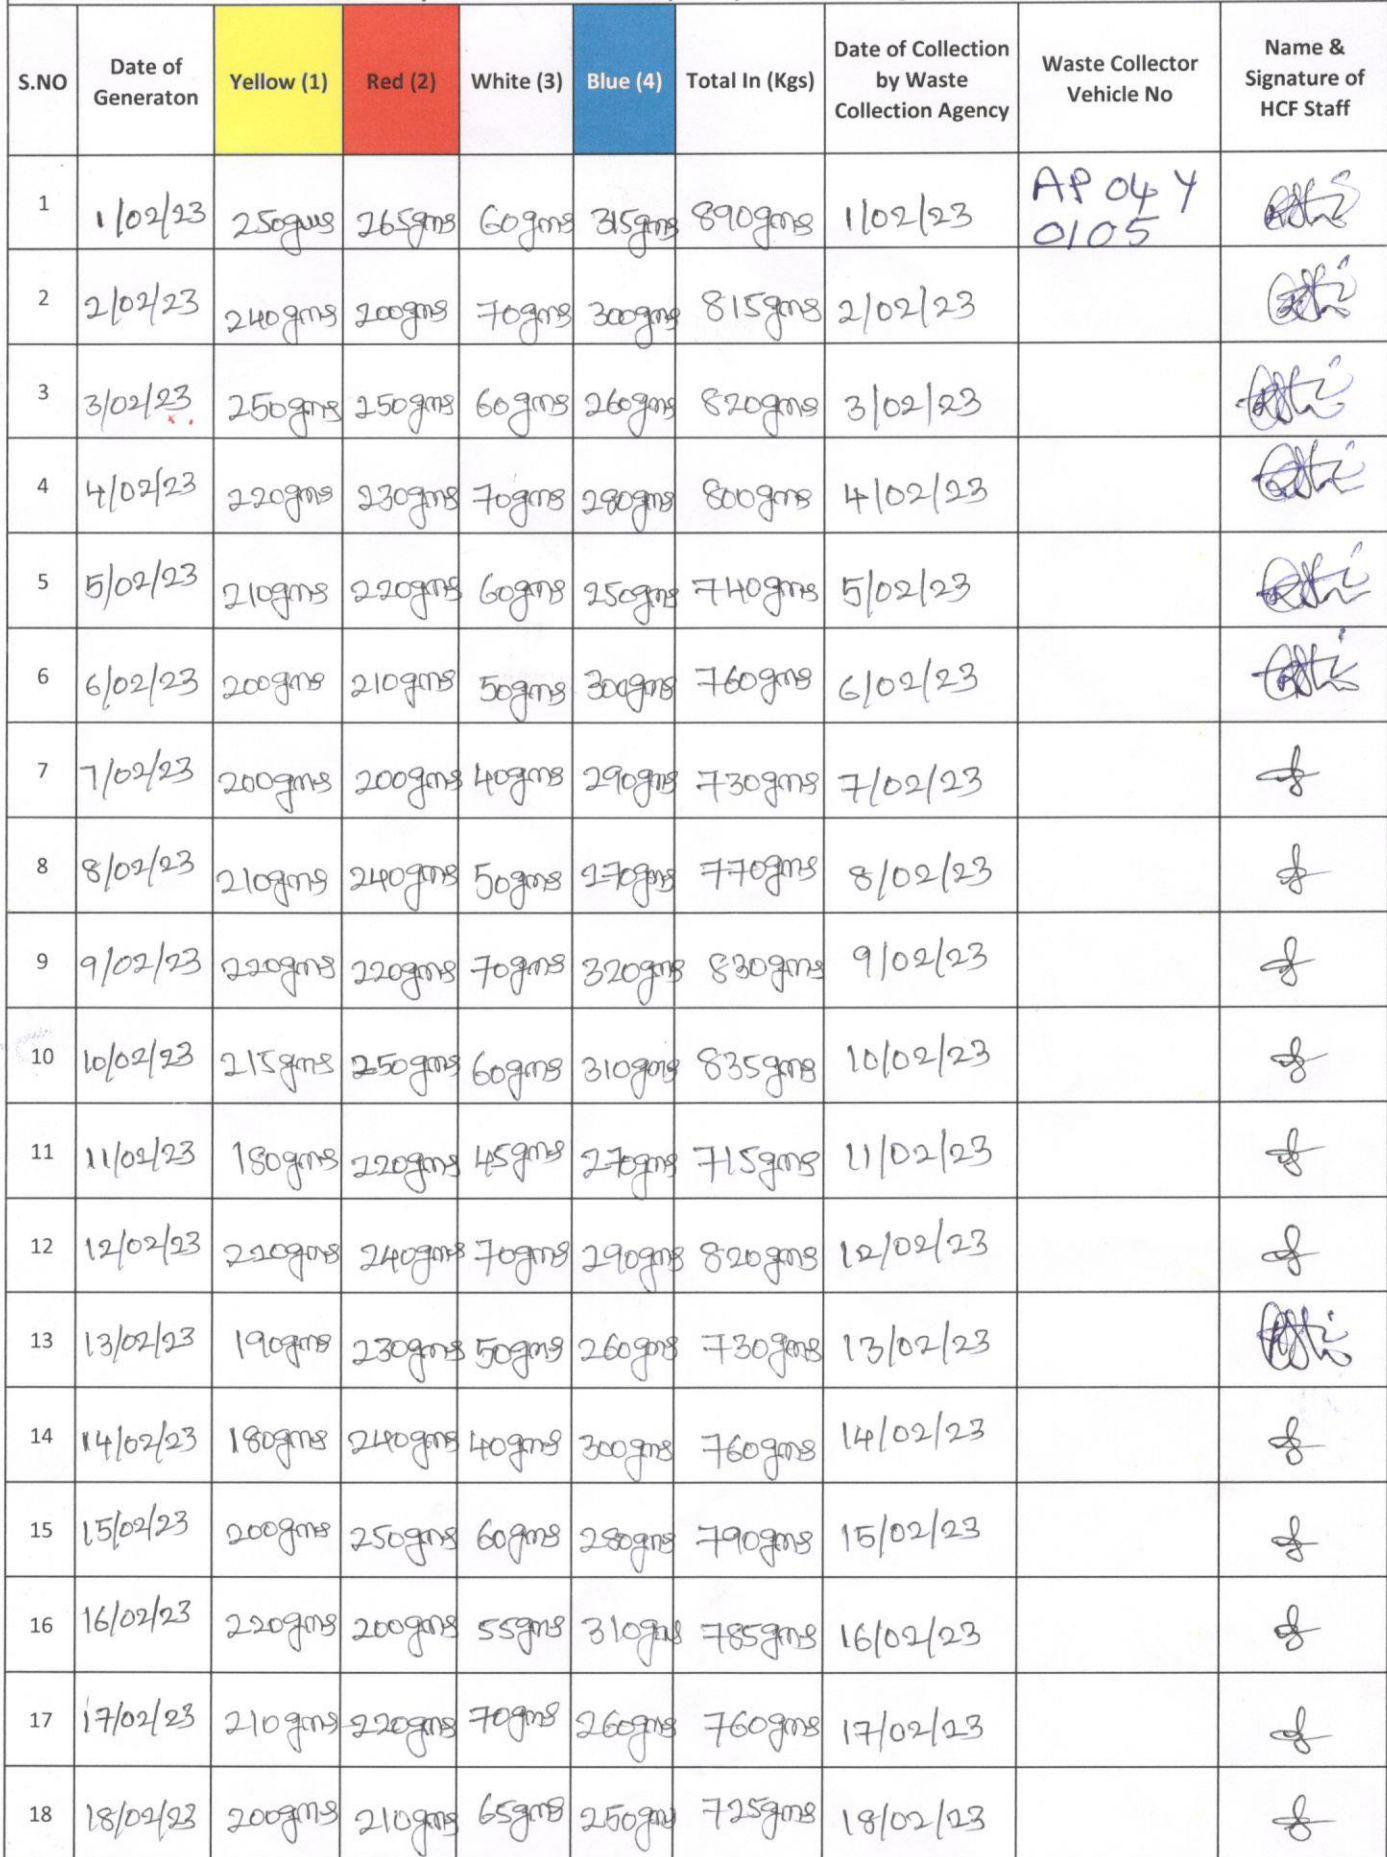 S.NO Date of Generaton Yellow (1) Red (2) White (3) Blue (4) Total In (Kgs) Date of Collection by Waste Collection Agency Waste Collector Vehicle No Name & Signature of HCF Staff
1 1/02/23 250gms 265gms 60gms 315gms 890gms 1/02/23 AP 04 Y 0105
2 2/02/23 240gms 200gms 70gms 300gms 815gms 2/02/23
3 3/02/23 250gms 250gms 60gms 260gms 820gms 3/02/23
4 4/02/23 220gms 230gms 70gms 280gms 800gms 4/02/23
5 5/02/23 210gms 220gms 60gms 250gms 740gms 5/02/23
6 6/02/23 200gms 210gms 50gms 300gms 760gms 6/02/23
7 7/02/23 200gms 200gms 40gms 290gms 730gms 7/02/23
8 8/02/23 210gms 240gms 50gms 270gms 770gms 8/02/23
9 9/02/23 220gms 220gms 70gms 320gms 830gms 9/02/23
10 10/02/23 215gms 250gms 60gms 310gms 835gms 10/02/23
11 11/02/23 180gms 220gms 45gms 270gms 715gms 11/02/23
12 12/02/23 220gms 240gms 70gms 290gms 820gms 12/02/23
13 13/02/23 190gms 230gms 50gms 260gms 730gms 13/02/23
14 14/02/23 180gms 240gms 40gms 300gms 760gms 14/02/23
15 15/02/23 200gms 250gms 60gms 280gms 790gms 15/02/23
16 16/02/23 220gms 200gms 55gms 310gms 785gms 16/02/23
17 17/02/23 210gms 220gms 70gms 260gms 760gms 17/02/23
18 18/02/23 200gms 210gms 65gms 250gms 725gms 18/02/23